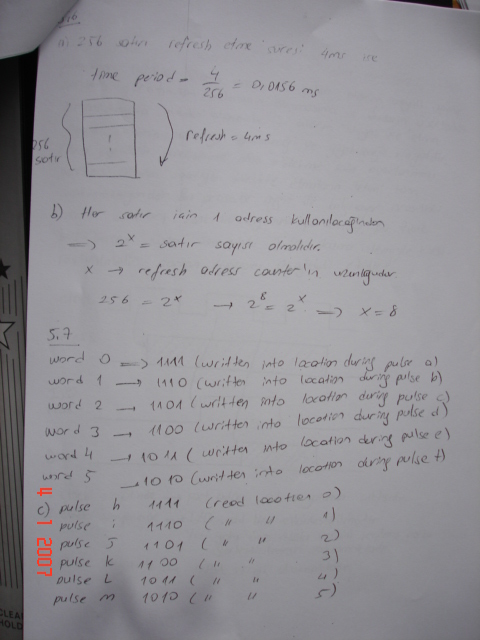 a) 256 satırı refresh etme süresi 4ms ise
time period = 4/256 = 0,0156 ms
256 satır
refresh = 4ms
b) Her satır için 1 adress kullanılacağından
=> 2^x = satır sayısı olmalıdır.
x → refresh adress counter'ın uzunluğudur.
256 = 2^x → 2^8 = 2^x => x = 8
5.7
word 0 => 1111 (written into location during pulse a)
word 1 → 1110 (written into location during pulse b)
word 2 → 1101 (written into location during pulse c)
word 3 → 1100 (written into location during pulse d)
word 4 → 1011 (written into location during pulse e)
word 5 → 1010 (written into location during pulse f)
c) pulse h 1111 (read location 0)
pulse i 1110 ( " " 1)
pulse J 1101 ( " " 2)
pulse k 1100 ( " " 3)
pulse L 1011 ( " " 4)
pulse m 1010 ( " " 5)
4 1 2007